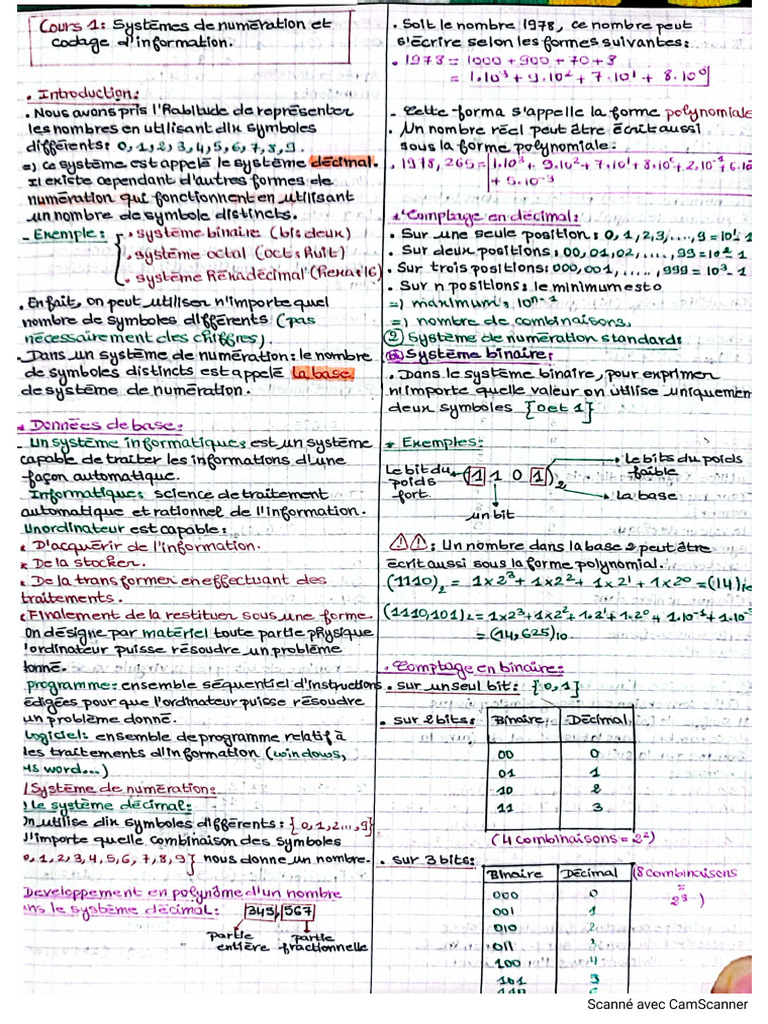 Cours 1: Systèmes de numération et
codage d'information.
. Introduction:
. Nous avons pris l'habitude de représenter
les nombres en utilisant dix symboles
différents: 0, 1, 2, 3, 4, 5, 6, 7, 8, 9.
=) ce système est appelé le système décimal.
Il existe cependant d'autres formes de
numération qui fonctionnent en utilisant
un nombre de symbole distincts.
- Exemple: . système binaire (bis deux)
. système octal (oct: huit)
. système hexadécimal (hexa: 16)
. En fait, on peut utiliser n'importe quel
nombre de symboles différents (pas
nécessairement des chiffres).
. Dans un système de numération: le nombre
de symboles distincts est appelé la base
de système de numération.
* Données de base:
- Un système informatique: est un système
capable de traiter les informations d'une
façon automatique.
Informatique: science de traitement
automatique et rationnel de l'information.
Un ordinateur est capable:
* D'acquérir de l'information.
* De la stocker.
* De la transformer en effectuant des
traitements.
* Finalement de la restituer sous une forme
On désigne par matériel toute partie physique
l'ordinateur puisse résoudre un problème
donné.
programme: ensemble séquentiel d'instructions
édigées pour que l'ordinateur puisse résoudre
un problème donné.
Logiciel: ensemble de programme relatif à
des traitements d'information (windows,
MS word...)
/ Système de numération:
) Le système décimal:
On utilise dix symboles différents: {0, 1, 2..., 9}
N'importe quelle combinaison des symboles
0, 1, 2, 3, 4, 5, 6, 7, 8, 9} nous donne un nombre.
Developpement en polynôme d'un nombre
ans le système décimal: 345,567
partie entière
partie fractionnelle
. Soit le nombre 1978, ce nombre peut
s'écrire selon les formes suivantes:
. 1978 = 1000 + 900 + 70 + 8
= 1.10³ + 9.10² + 7.10¹ + 8.10⁰
- Cette forma s'appelle la forme polynomiale
. Un nombre réel peut être écrit aussi
sous la forme polynomiale:
. 1978,265 = 1.10³ + 9.10² + 7.10¹ + 8.10⁰ + 2.10⁻¹ + 6.10
+ 5.10⁻³
* Comptage en décimal:
. Sur une seule position: 0, 1, 2, 3, ...., 9 = 10¹- 1
. Sur deux positions: 00, 01, 02, ...., 99 = 10²- 1
. Sur trois positions: 000, 001, ...., 999 = 10³ - 1
. Sur n positions: le minimum est 0
=) maximum: 10ⁿ⁻¹
=) nombre de combinaisons.
② Système de numération standard:
ⓐ Système binaire:
. Dans le système binaire, pour exprimer
n'importe quelle valeur on utilise uniquemen
deux symboles {0 et 1}
* Exemples:
Le bit du poids fort.
(1 1 0 1)₂
Le bits du poids faible
La base
un bit
⚠⚠: Un nombre dans la base 2 peut être
écrit aussi sous la forme polynomial.
(1110)₂ = 1×2³ + 1×2² + 1×2¹ + 1×2⁰ = (14)₁₀
(1110,101)₂ = 1×2³ + 1×2² + 1.2¹ + 1.2⁰ + 1.10⁻¹ + 1.10⁻³
= (14,625)₁₀
. Comptage en binaire:
. sur un seul bit: {0, 1}
. sur 2 bits: Binaire Décimal
00 0
01 1
10 2
11 3
(4 combinaisons = 2²)
. sur 3 bits: Binaire Décimal (8 combinaisons = 2³)
000 0
001 1
010 2
011 3
100 4
101 5
110 6
Scanné avec CamScanner